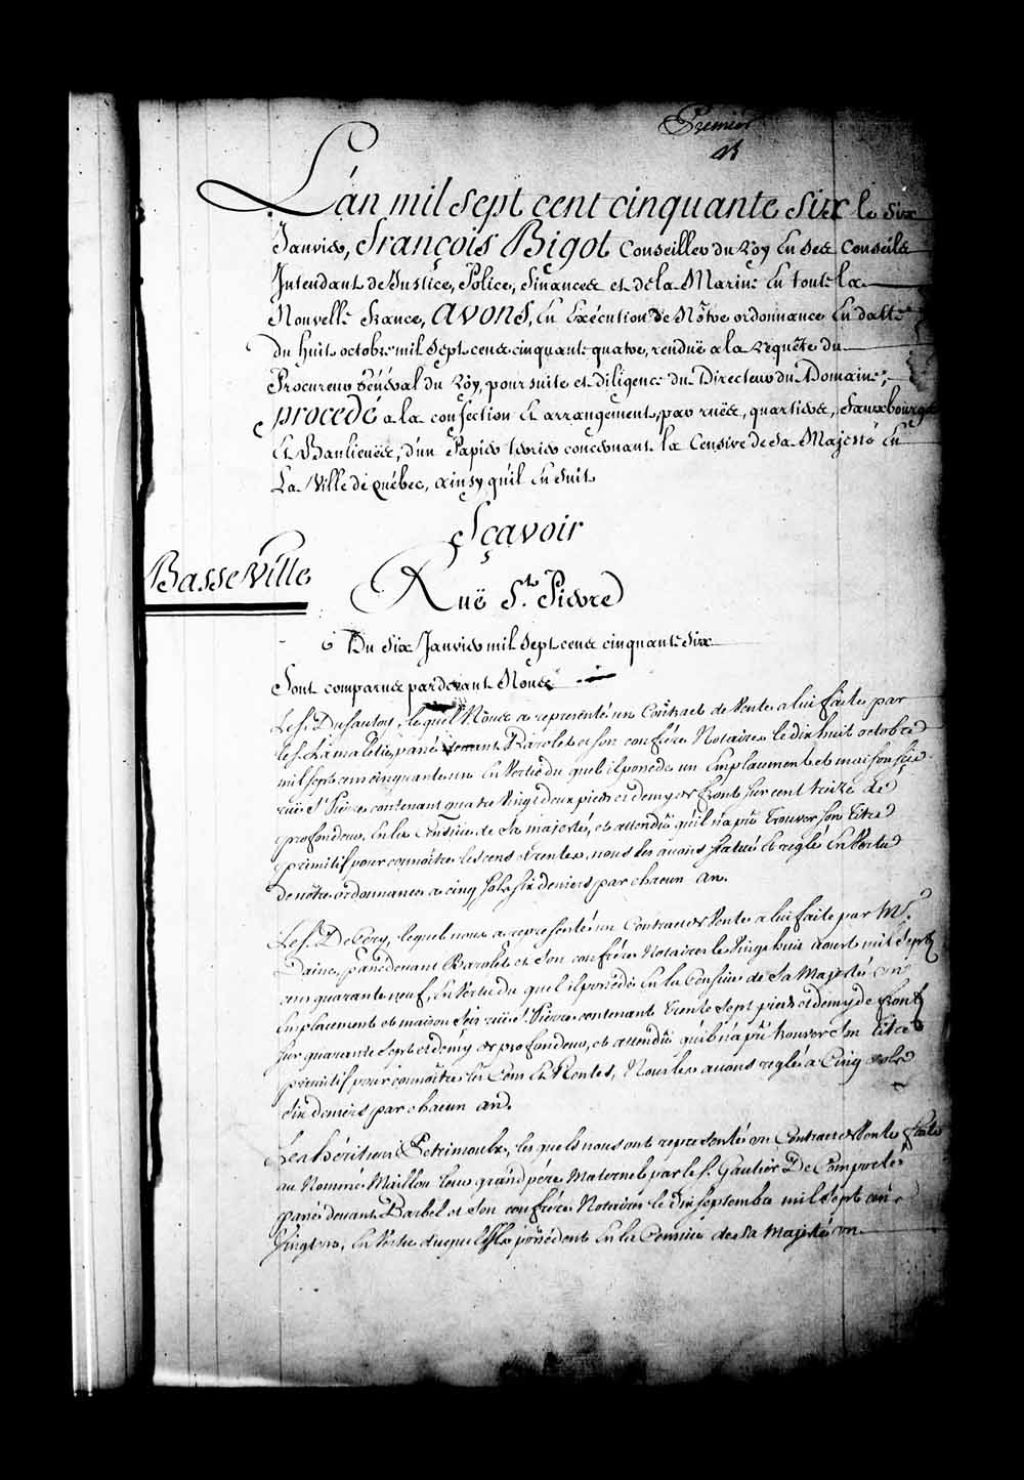 Premier
L'an mil sept cent cinquante six le six
Janvier, François Bigot Conseiller du Roy En ses Conseils
Intendant de Justice, Police, finances et de la Marine En toute la
Nouvelle france, avons, En Exécution de Nôtre ordonnance En datte
du huit octobre mil sept cens cinquante quatre, renduë a la requête du
Procureur Général du Roy, poursuite et diligence du Directeur du Domaine,
procedé a la confection Et arrangement, par ruës, quartiers, fauxbourgs
Et Banlieuës, d'un Papier terrier concernant la Censive de sa Majesté En
La Ville de Québec, ainsy qu'il En suit
Sçavoir
Basse Ville
Ruë St. Pierre
Du six Janvier mil sept cens cinquante six
Sont comparus pardevant Nous
Le s. Dufautoy, lequel Nous a representé un Contract de Vente a lui faite par
le s. Lamaletie, passé devant Barolet et son confrère Notaires le dix huit octobre
mil sept cent cinquante un En Vertu du quel il possede un Emplacement et maison size
ruë St Pierre contenant quatre Vingt deux pieds et demy de front sur cent treize de
profondeur En la Censive de sa majesté, et attendû qu'il n'a pû trouver son titre
primitif pour connoître les cens et rentes, nous les avons statué et reglé En Vertu
de nôtre ordonnance a cinq sols six deniers par chacun an.
Le s. Decery, lequel nous a representé un Contract de Vente a lui faite par Mr.
Daine, passé devant Barolet et Son confrère Notaires le Vingt huit aoust mil sept
cens quarante neuf, En Vertu du quel il possede En la Censive de Sa Majesté un
Emplacement et maison size ruë St. Pierre contenant trente sept pieds et demy de front
sur quarante sept et demy de profondeur, et attendû qu'il n'a pû trouver son titre
primitif pour connoître les Cens Et Rentes, Nous les avons reglé a Cinq sols
six deniers par chacun an.
Les héritiers Petrimoulx, lesquels nous ont representé un Contract de Vente faite
au Nommé Maillou leur grand père Maternel par le s. Gautier De Comporté
passé devant Barbel et Son confrère Notaires le dix septembre mil sept cent
Vingt, En Vertu duquel Ils possedent En la Censive de Sa Majesté un